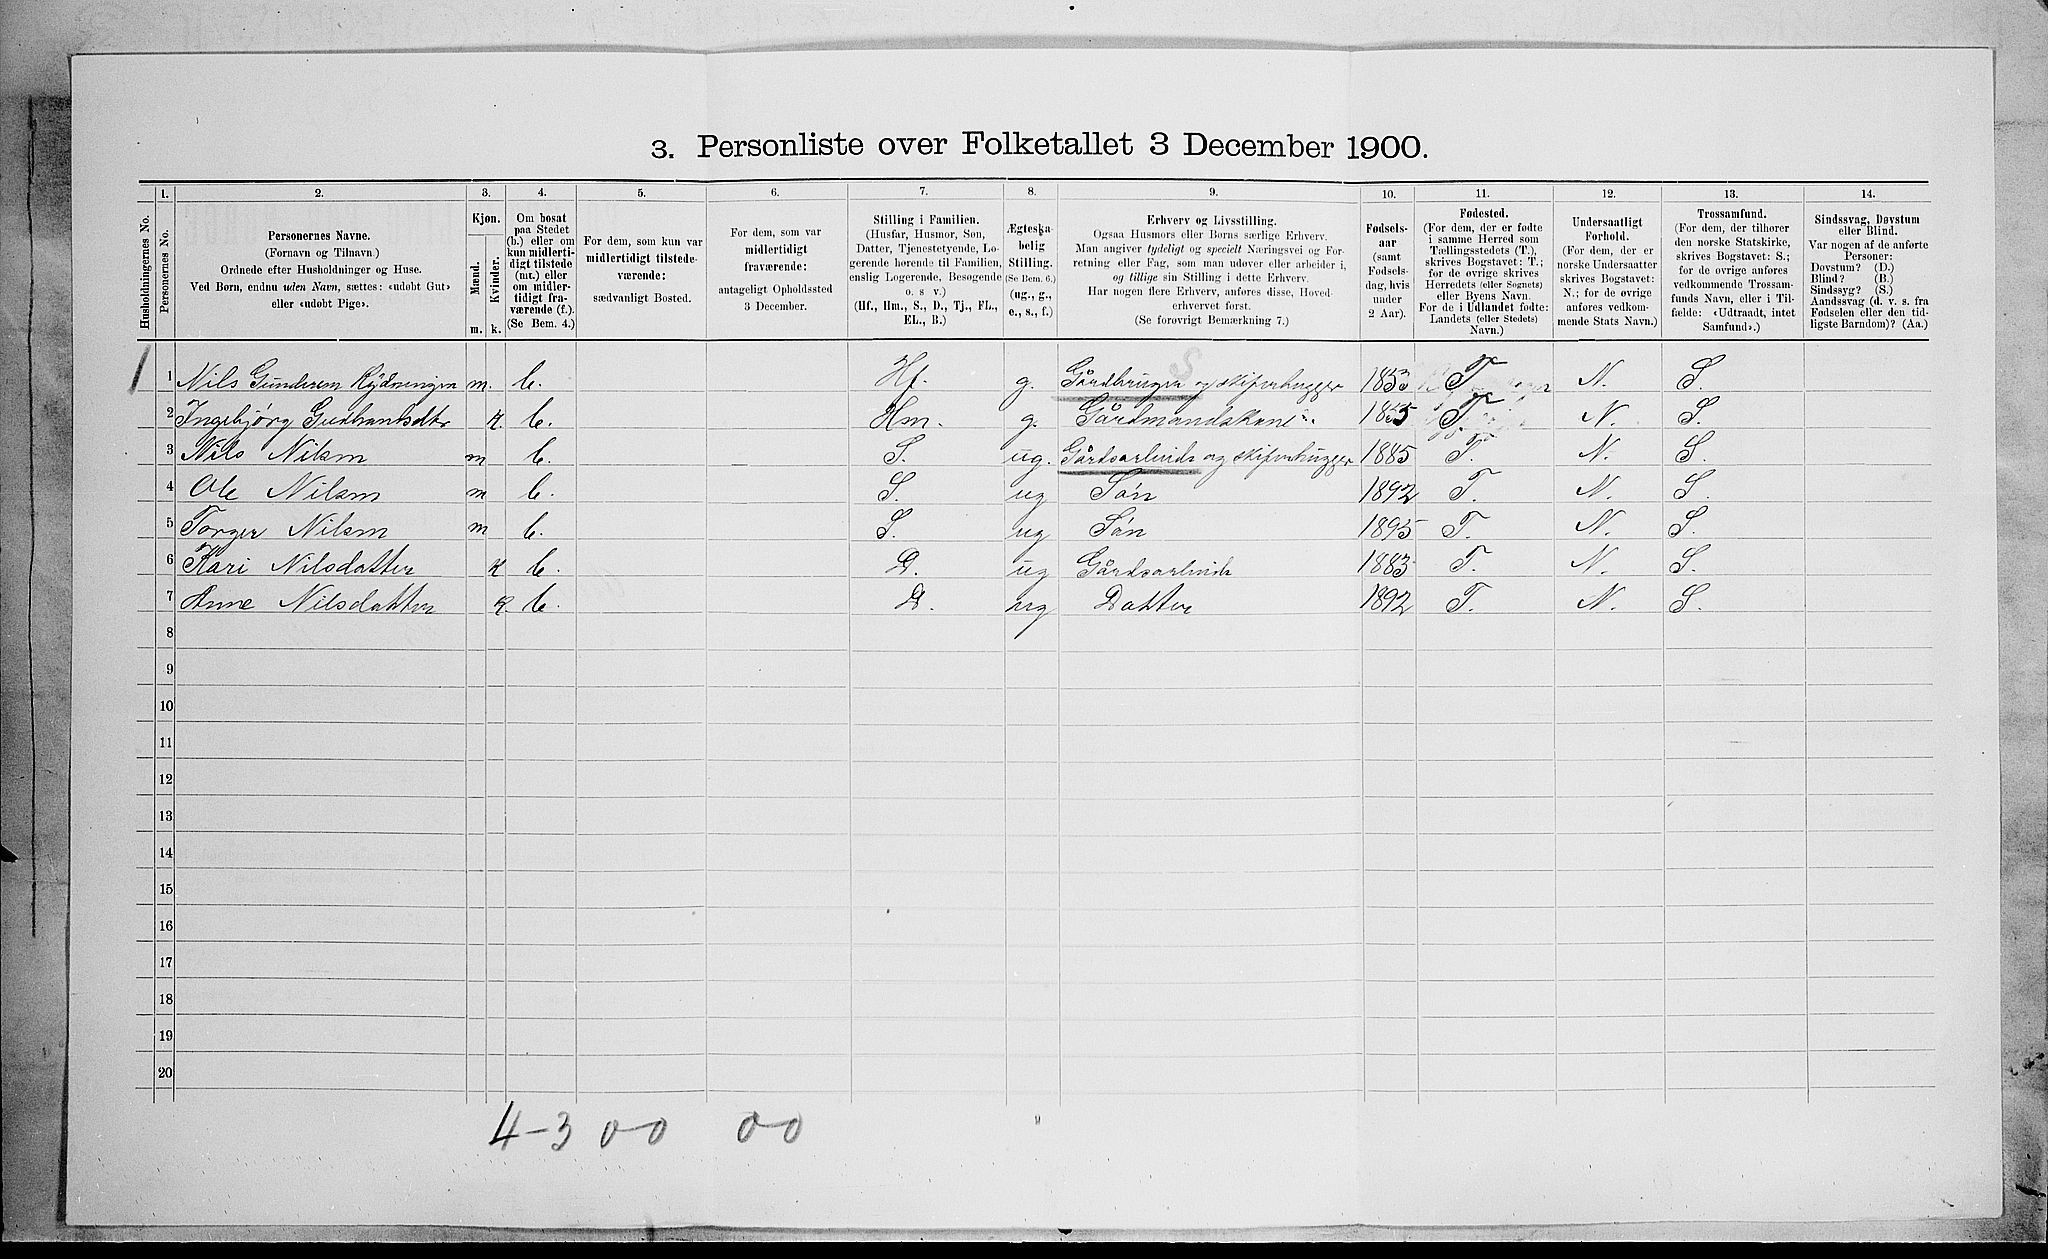 3. Personliste over Folketallet 3 December 1900.
Husholdningernes No.
1.
Personernes No.
2.
Personernes Navne.
(Fornavn og Tilnavn.)
Ordnede efter Husholdninger og Huse.
Ved Børn, endnu uden Navn, sættes: «udøbt Gut»
eller «udøbt Pige».
3.
Kjøn.
Mænd.
Kvinder.
m. k.
4.
Om bosat
paa Stedet
(b.) eller om
kun midlerti-
digt tilstede
(mt.) eller
om midler-
tidigt fra-
værende (f.).
(Se Bem. 4.)
5.
For dem, som kun var
midlertidigt tilstede-
værende:
sædvanligt Bosted.
6.
For dem, som var
midlertidigt
fraværende:
antageligt Opholdssted
3 December.
7.
Stilling i Familien.
(Husfar, Husmor, Søn,
Datter, Tjenestetyende, Lo-
gerende hørende til Familien,
enslig Logerende, Besøgende
o. s v.)
(Hf., Hm., S., D., Tj., FL.,
EL., B.)
8.
Ægteska-
belig
Stilling.
(Se Bem. 6.)
(ug., g.,
e., s., f.)
9.
Erhverv og Livsstilling.
Ogsaa Husmors eller Børns særlige Erhverv.
Man angiver tydeligt og specielt Næringsvei og For-
retning eller Fag, som man udøver eller arbeider i,
og tillige sin Stilling i dette Erhverv.
Har nogen flere Erhverv, anføres disse, Hoved-
erhvervet først.
(Se forøvrigt Bemærkning 7.)
10.
Fødsels-
aar
(samt
Fødsels-
dag, hvis
under
2 Aar).
11.
Fødested.
(For dem, der er fødte
i samme Herred som
Tællingsstedets (T.),
skrives Bogstavet: T.;
for de øvrige skrives
Herredets (eller Sognets)
eller Byens Navn.
For de i Udlandet fødte:
Landets (eller Stedets)
Navn.)
12.
Undersaatligt
Forhold.
(For dem, der er
norske Undersaatter
skrives Bogstavet:
N.; for de øvrige
anføres vedkom-
mende Stats Navn.)
13.
Trossamfund.
(For dem, der tilhører
den norske Statskirke,
skrives Bogstavet: S.;
for de øvrige anføres
vedkommende Trossam-
funds Navn, eller i Til-
fælde: «Udtraadt, intet
Samfund».)
14.
Sindssvag, Døvstum
eller Blind.
Var nogen af de anførte
Personer:
Døvstum? (D.)
Blind? (B.)
Sindssyg? (S.)
Aandssvag (d. v. s. fra
Fødselen eller den tid-
ligste Barndom)? (Aa.)
1 1 Nils Gundersen m. b. Hf. g. Gårdbruger og skiferhugger 1853 T. N. S.
2 Ingebjørg Gudbrandsdtr k b. Hm. g. Gårdmandskone 1855 T. N. S.
3 Nils Nilsen m b. S. ug. Gårdsarbeide og skiferhugger 1885 T. N. S.
4 Ole Nilsen m b. S. ug Søn 1892 T. N. S.
5 Torger Nilsen m b. S. ug Søn 1895 T. N. S.
6 Kari Nilsdatter k b. D. ug Gårdsarbeide 1883 T. N. S.
7 Anne Nilsdatter k. b. D. ug Datter 1892 T. N. S.
8
9
10
11
12
13
14
15
16
17
18
19
20
4-3 0-0 0-0